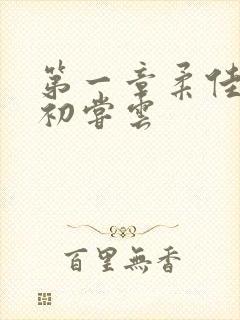 第一章柔佳
初尝云
百里無香